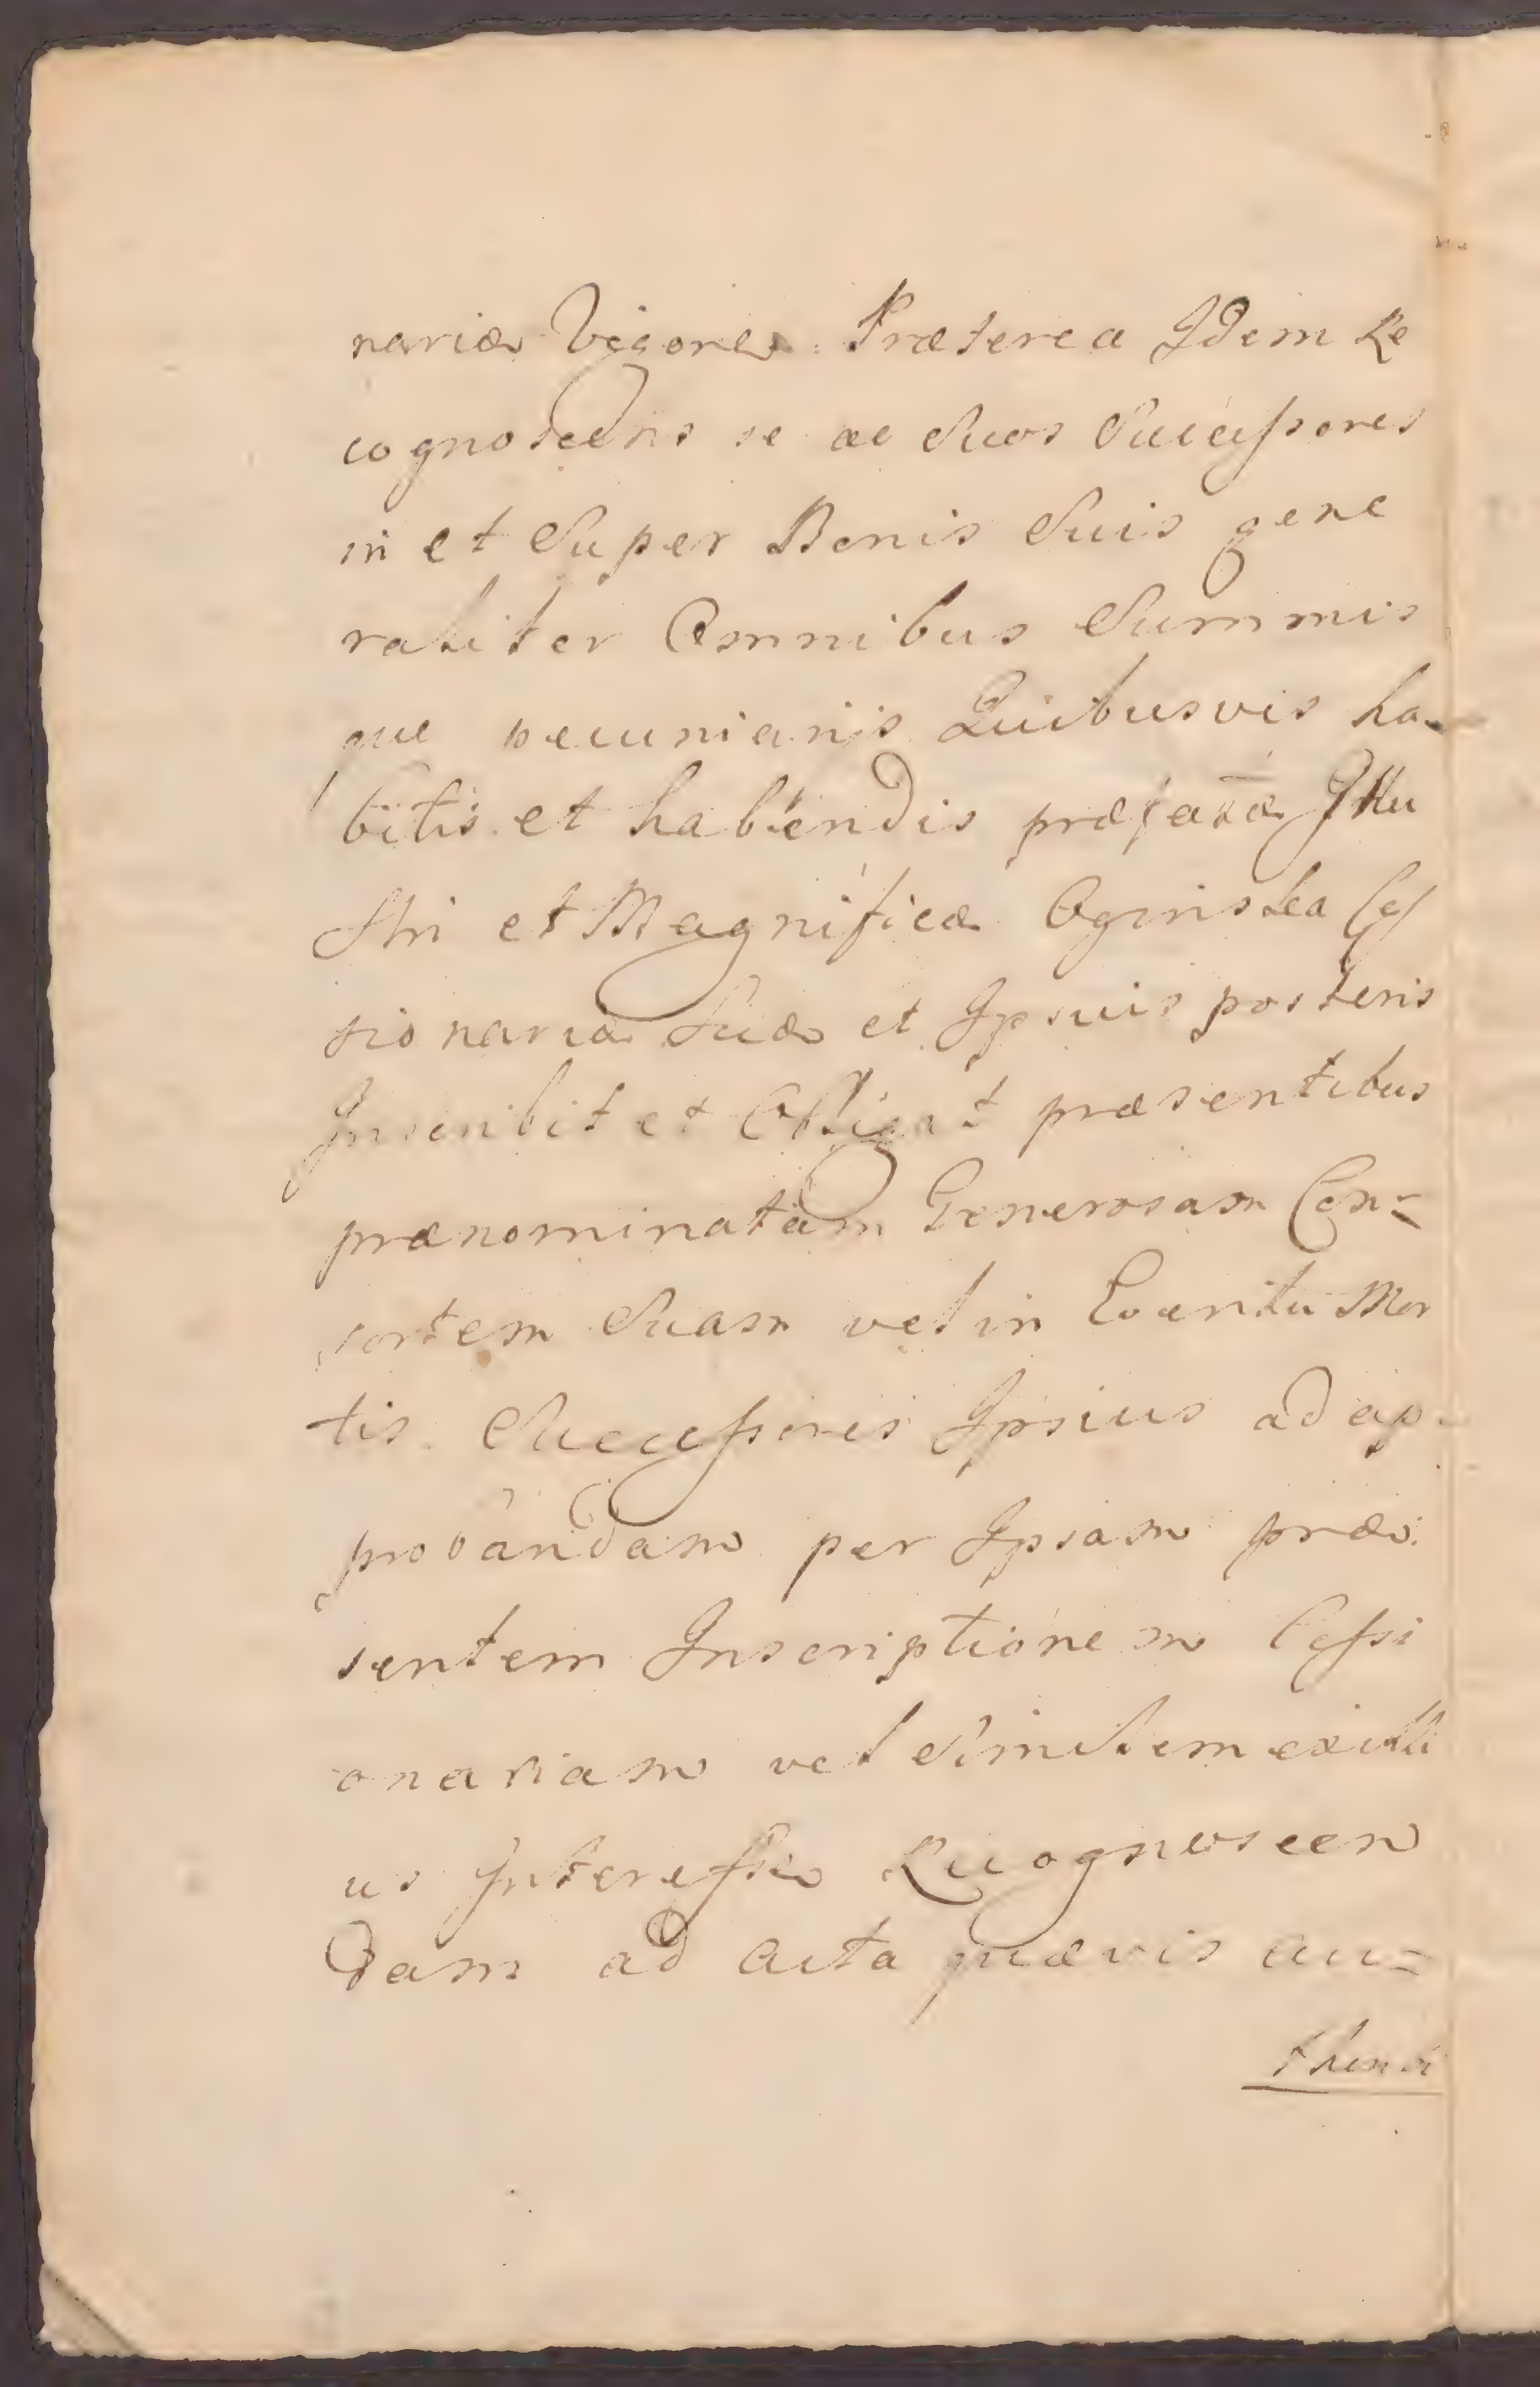 nariæ Vigore. Præterea Idem Re
cognoscens se ac Suos Successores
in et Super Bonis Suis gene
raliter Omnibus Summis
que pecuniarijs Quibusvis ha-
bitis et habendis præfatæ Illu
stri et Magnificæ Oginska Ces
sionariæ Suæ et Ipsius posteris
Inscribit et Obligat præsentibus
prænominatam Generosam Con=
sortem Suam vel in Eventu Mor
tis Successores Ipsius ad ap-
probandam per Ipsam præ
sentem Inscriptionem Cessi
onariam vel Similem
us Interesse Recognoscen
dam ad Acta quævis au=
thenti